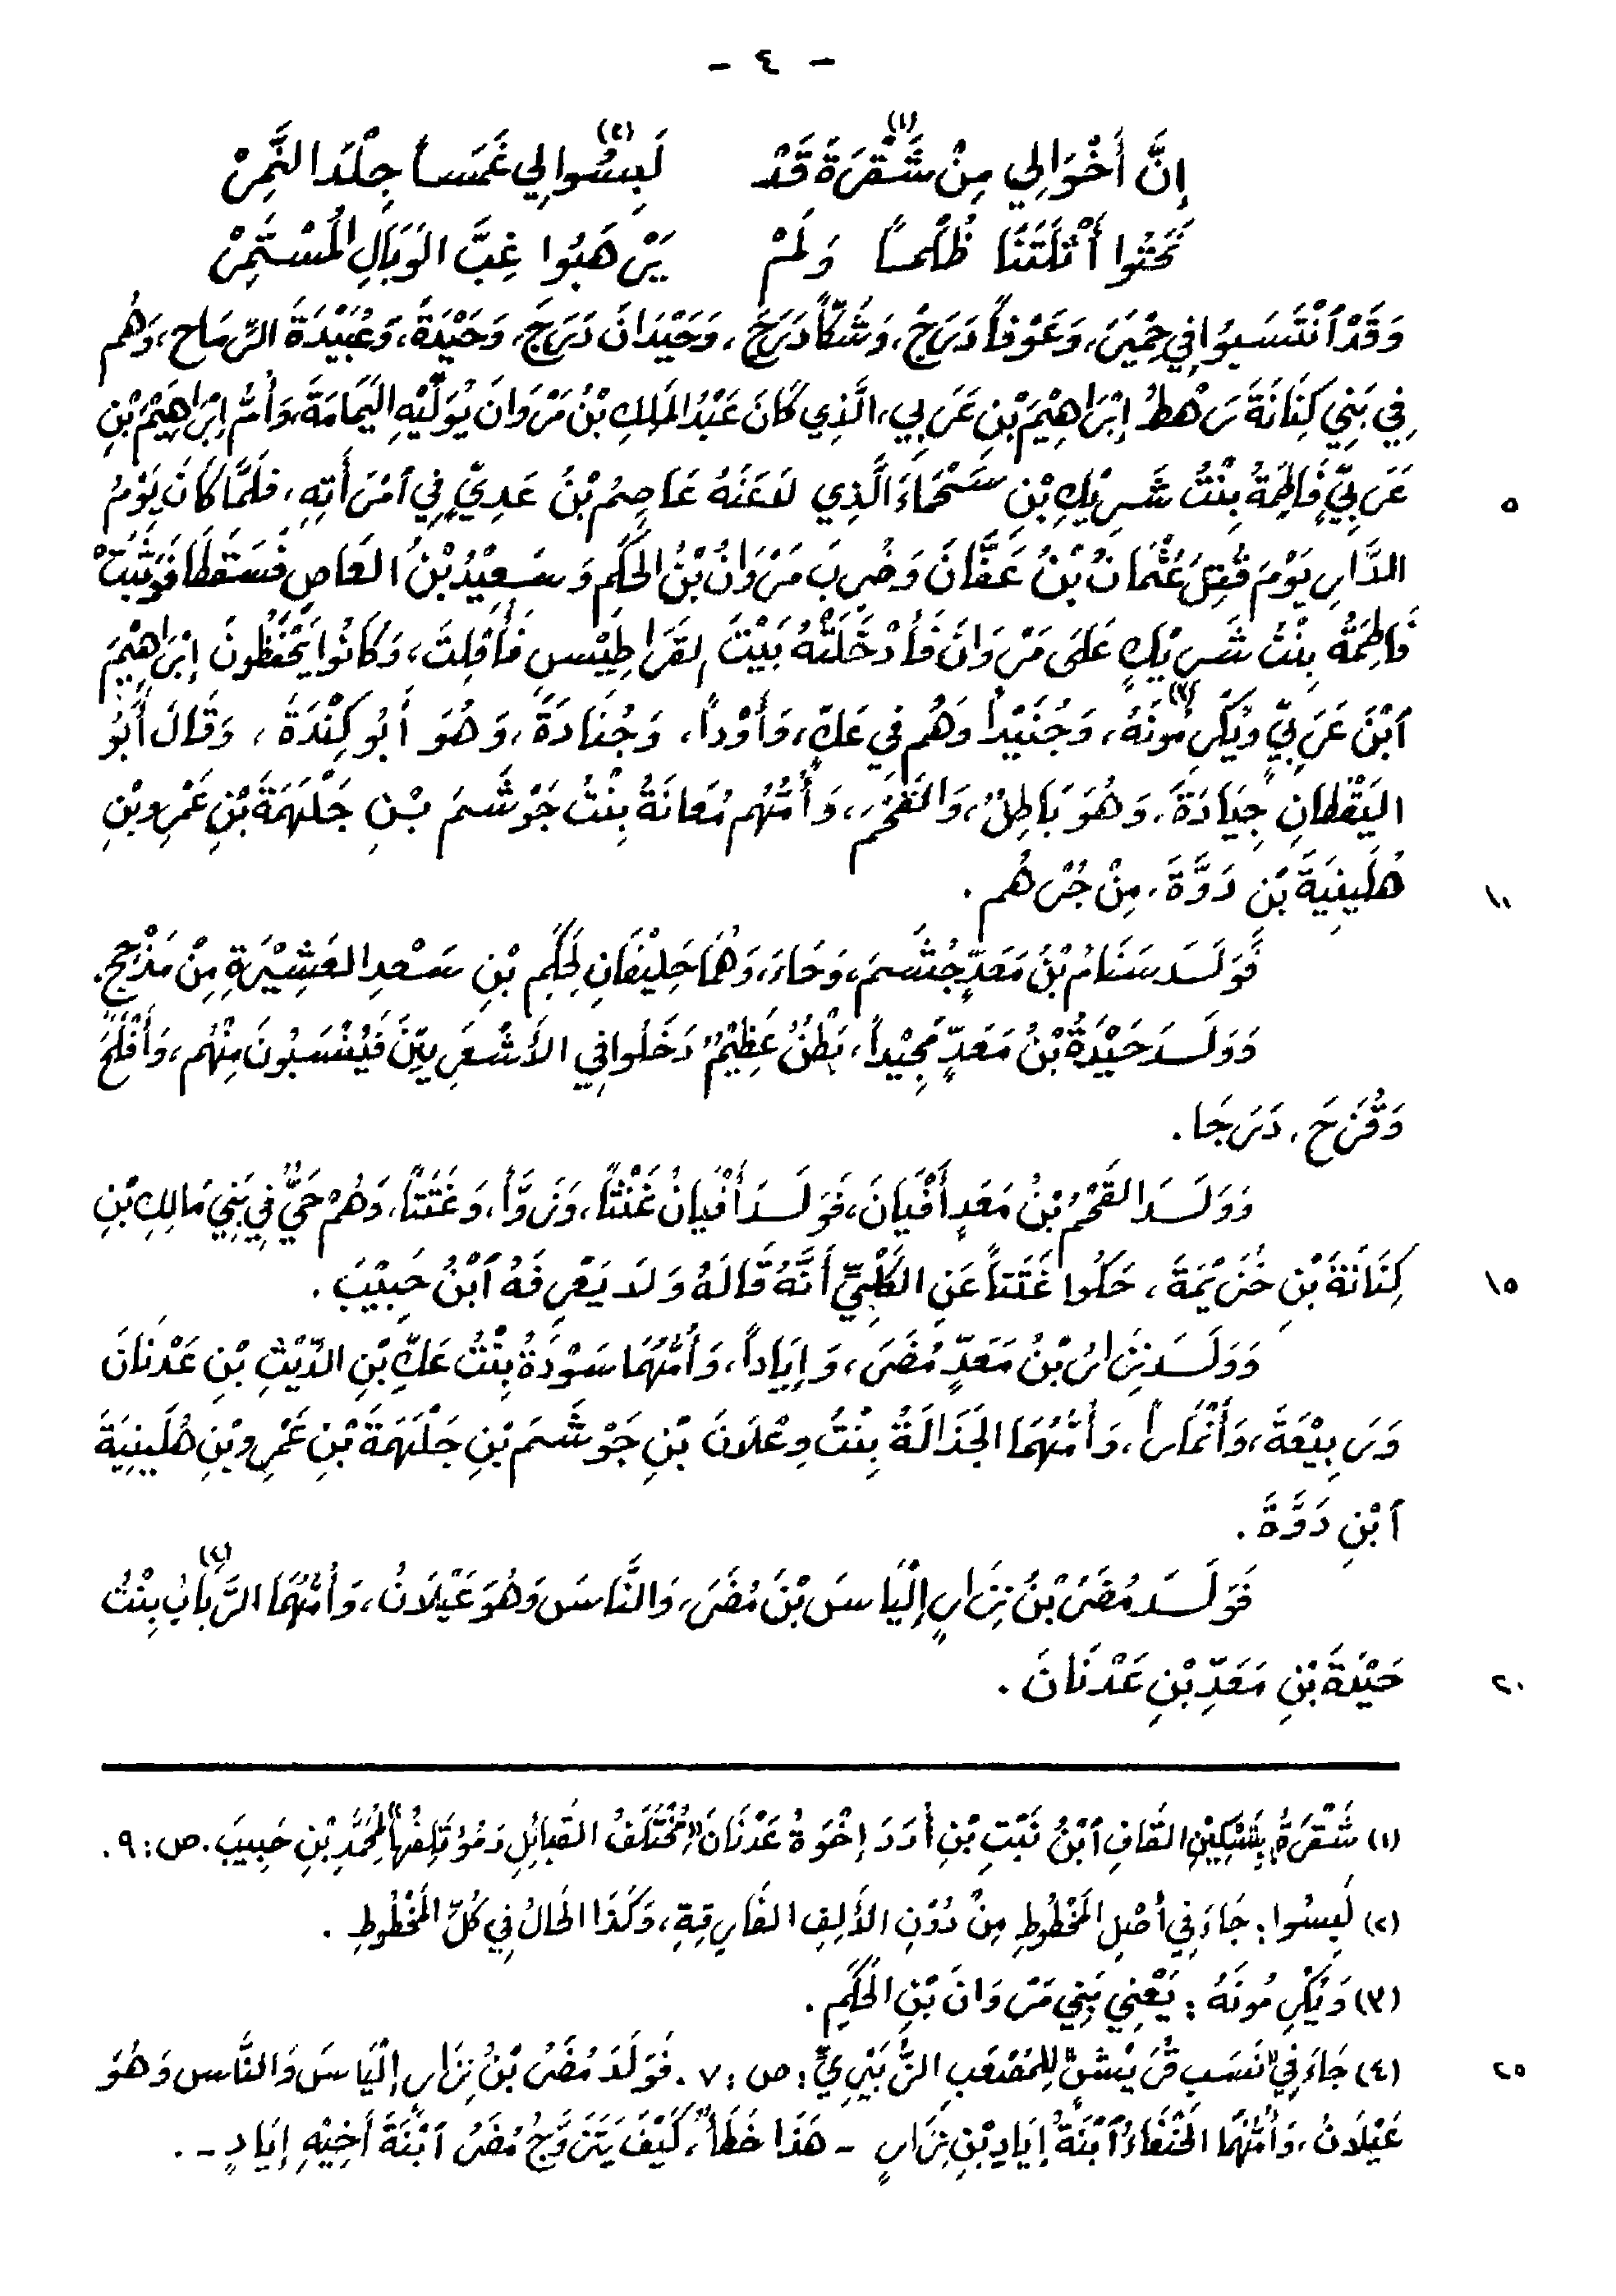 - ٤ -
إِنَّ أَخْوَالِي مِنْ شَقْرَةَ(١) قَدْ لَبِسُوا(٢) لِي غَمَساً جِلْدَ النَّمِرْ
نَحَتُوا أَثْلَتَنَا ظُلْماً وَلَمْ يَرْهَبُوا غِبَّ الوَبَالِ المُسْتَمِرْ
وَقَدْ ٱنْتَسَبُوا فِي حِمْيَرَ، وَعَوْفاً دَرَجَ، وَشَكّاً دَرَجَ، وَحَيْدَانَ دَرَجَ، وَحَيْدَةَ، وَعُبَيْدَةَ الرِّمَاحِ، وَهُم
فِي بَنِي كَنَانَةَ رَهْطُ إِبْرَاهِيْمَ بْنِ عَرَبِي، الَّذِي كَانَ عَبْدُ المَلِكِ بْنُ مَرْوَانَ يُوَلِّيْهِ اليَمَامَةَ، وَأُمُّ إِبْرَاهِيْمَ بْنِ
٥ عَرَبِيٍّ فَاطِمَةُ بِنْتُ شَرِيْكِ بْنِ سَحْمَاءَ الَّذِي لَاعَنَهُ عَاصِمُ بْنُ عَدِيٍّ فِي ٱمْرَأَتِهِ، فَلَمَّا كَانَ يَوْمُ
الدَّارِ يَوْمَ قُتِلَ عُثْمَانُ بْنُ عَفَّانَ وَضُرِبَ مَرْوَانُ بْنُ الحَكَمِ وَسَعِيْدُ بْنُ العَاصِ فَسَقَطَا فَوَثَبَتْ
فَاطِمَةُ بِنْتُ شَرِيْكٍ عَلَى مَرْوَانَ فَأَدْخَلَتْهُ بَيْتَ القَرَاطِيْسِ فَأَفْلِتَ، وَكَانُوا يَحْفَظُونَ إِبْرَاهِيْمَ
ٱبْنَ عَرَبِيٍّ وَيُكْرِمُونَهُ(٣)، وَجُنَيْداً وَهُم فِي عَكٍّ، وَأَوْداً، وَجُنَادَةَ، وَهُوَ أَبُو كِنْدَةَ، وَقَالَ أَبُو
اليَقْظَانِ جِيَادَةَ، وَهُوَ بَاطِلٌ، وَالقَحْمَ، وَأُمُّهُم مُعَانَةُ بِنْتُ جَوْشَمَ بْنِ جَلْهَمَةَ بْنِ عَمْرِو بْنِ
١٠ هُلَينِيَةَ بْنِ دَوَّةَ، مِنْ جُرْهُم.
فَوَلَدَ سَنَامُ بْنُ مَعَدٍّ جُشَمَ، وَحَاءَ، وَهُمَا حَلِيْفَانِ لِحَكَمِ بْنِ سَعْدِ العَشِيْرَةِ مِنْ مَذْحِجٍ.
وَوَلَدَ حَيْدَةُ بْنُ مَعَدٍّ مَجِيْداً، بَطْنٌ عَظِيْمٌ دَخَلُوا فِي الأَشْعَرِيِّينَ فَيُنْسَبُونَ مِنْهُم، وَأَفْلَحَ
وَقُزَحَ، دَرَجَا.
وَوَلَدَ القَحْمُ بْنُ مَعَدٍ أَفْيَانَ، فَوَلَدَ أَفْيَانُ غَنْثاً، وَنَرْوَاً، وَغَتَتاً، وَهُمْ حَيٌّ فِي بَنِي مَالِكِ بْنِ
١٥ كِنَانَةَ بْنِ خُزَيْمَةَ، حَكَوا غَتَتاً عَنِ الكَلْبِيِّ أَنَّهُ قَالَهُ وَلَا يَعْرِفَهُ ٱبْنُ حَبِيْبَ.
وَوَلَدَ نِزَارُ بْنُ مَعَدٍّ مُضَرَ، وَإِيَاداً، وَأُمُّهُمَا سَوْدَةُ بِنْتُ عَكِّ بْنِ الدِّيْثِ بْنِ عَدْنَانَ
وَرَبِيْعَةَ، وَأَنْمَاراً، وَأُمُّهُمَا الجَذَالَةُ بِنْتُ وِعْلَانَ بْنِ جَوْشَمَ بْنِ جَلْهَمَةَ بْنِ عَمْرِو بْنِ هُلَينِيَةَ
ٱبْنِ دَوَّةَ.
فَوَلَدَ مُضَرُ بْنُ نِزَارٍ إِلْيَاسَ بْنَ مُضَرَ، وَالنَّاسَ وَهُوَ عَيْلَانُ، وَأُمُّهُمَا الرَّبَابُ(٤) بِنْتُ
٢٠ حَيْدَةَ بْنِ مَعَدِّ بْنِ عَدْنَانَ.
(١) شَقْرَةُ: بِتَسْكِيْنِ القَافِ ٱبْنُ نَبْتِ بْنِ أُدَدَ إِخْوَةُ عَدْنَانَ "مُخْتَلَفُ القَبَائِلِ وَمُؤتَلِفُهَا" لِمُحَمَّدِ بْنِ حَبِيبَ. ص: ٩.
(٢) لَبِسُوا: جَاءَ فِي أَصْلِ المَخْطُوطِ مِنْ دُوْنِ الأَلِفِ الفَارِقِةِ، وَكَذَا الحَالُ فِي كُلِّ المَخْطُوطِ.
(٣) وَيُكْرِمُونَهُ: يَعْنِي بَنِي مَرْوَانَ بْنِ الحَكَمِ.
٢٥ (٤) جَاءَ فِي "نَسَبِ قُرَيْشٍ" لِلمُصْعَبِ الزُّبَيْرِيِّ: ص: ٧. فَوَلَدَ مُضَرُ بْنُ نِزَارٍ إِلْيَاسَ وَالنَّاس وَهُوَ
عَيْلَانُ، وَأُمُّهُمَا الحَنْفَاءُ ٱبْنَةُ إِيَادِ بْنِ نِزَارٍ - هَذَا خَطَأٌ، كَيْفَ يَتَزَوَّجُ مُضَرُ ٱبْنَةَ أَخِيْهِ إِيَادٍ -.